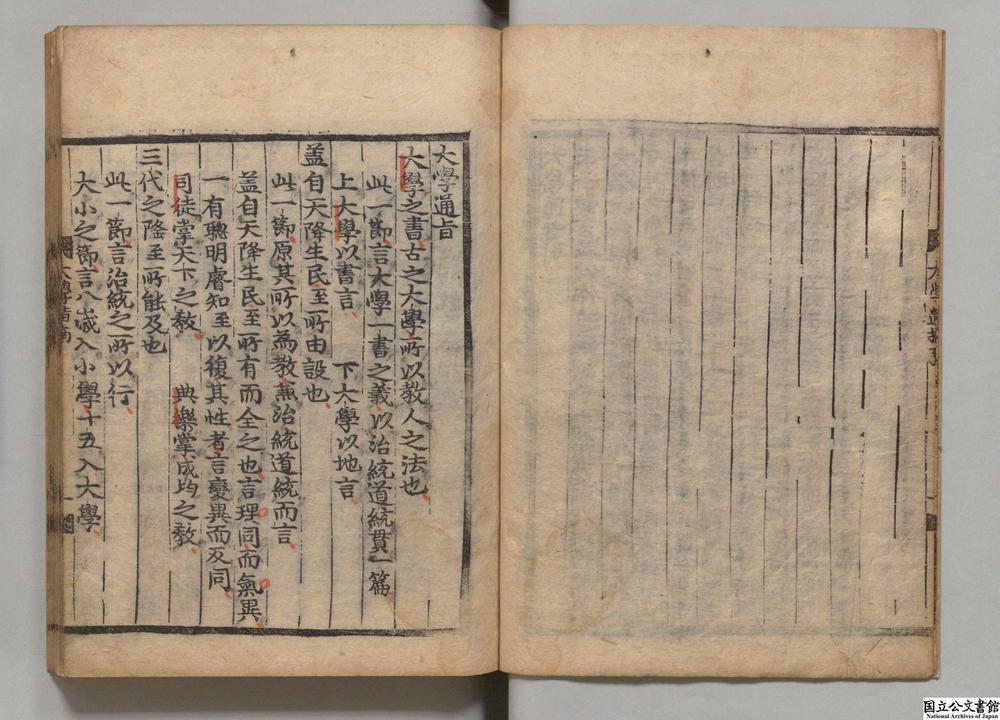 大學通旨
大學之書古之大學所以教人之法也
此一節言大學一書之義以治統道統貫一篇
上大學以書言　下大學以地言
盖自天降生民至所由設也
此一節原其所以為教兼治統道統而言
盖自天降生民至所有而全之也言理同而氣異
一有聰明睿知至以復其性者言變異而反同
司徒掌天下之教　典樂掌成均之教
三代之隆至所能及也
此一節言治統之所以行
大小之節言八歲入小學十五入大學
国立公文書館
National Archives of Japan